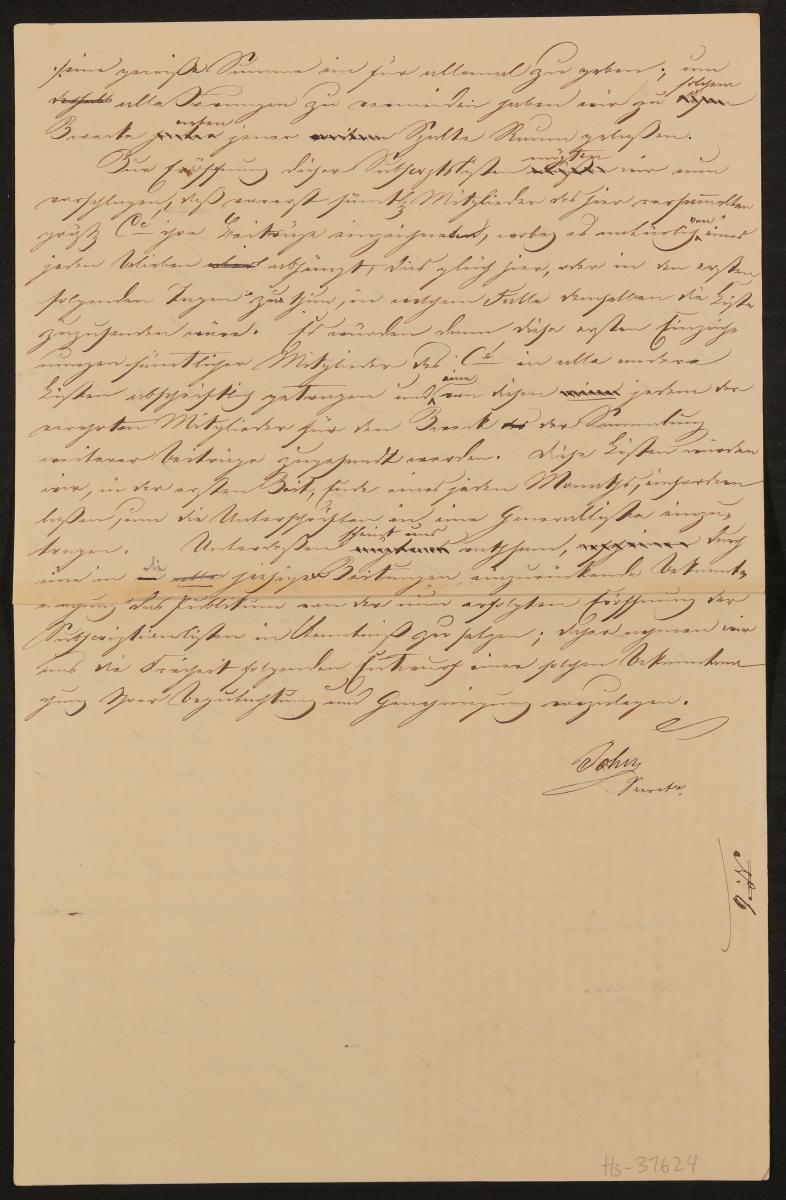 /:eine gewisse Summe ein für allemal zu geben:, um
deshalb alle Irrungen zu vermeiden haben wir zu solchem
Zwecke neben jener Spalte Raum gelassen.
Zur Eröffnung dieser Subscriptslisten mögten wir nun
vorschlagen, daß vorerst sämtl Mitglieder des hier versammelten
größ Cé ihre Beiträge einzeichneten, wobey es natürlich von eines
jeden Belieben abhängt, dies gleich hier, oder in den ersten
folgenden Tagen zu thun, in welchem Falle demselben die Liste
zuzusenden wäre. Es würden dann diese ersten Einzeich
nungen sämtlicher Mitglieder des Cé in alle andere
Listen abschriftlich getragen und von diesen eine jedem der
verehrten Mitglieder für den Zweck der Sammlung
weiterer Beiträge zugesandt werden. Diese Listen würden
wir, in der ersten Zeit, Ende eines jeden Monaths, einfordern
lassen, um die Unterschriften in eine Generalliste einzu=
tragen. Unterdessen scheint uns rathsam, durch
eine in die hiesige Zeitungen einzurückende Bekannt=
machung das Publikum von der nun erfolgten Eröffnung der
Subscriptionslisten in Kenntniß zu setzen; daher nehmen wir
uns die Freiheit folgenden Entwurf einer solchen Bekanntma
chung Ihrer Begutachtung und Genehmigung vorzulegen.
John
Secretr.
No. 6
Hs-31624